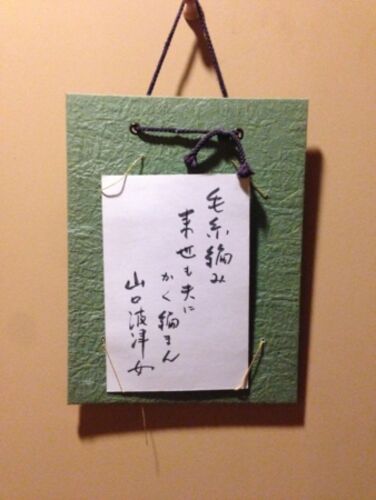 毛糸編み
来世も夫に
かく編まん
山口波津女